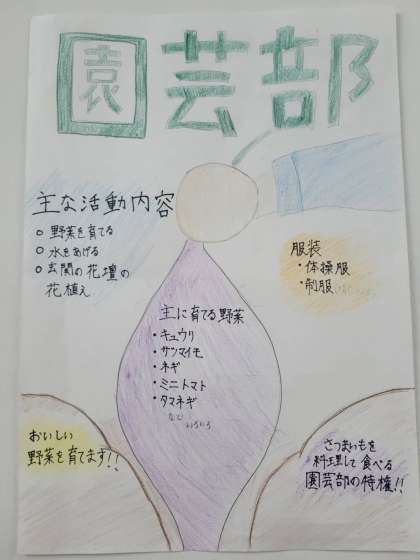 園芸部
主な活動内容
○ 野菜を育てる
○ 水をあげる
○ 玄関の花壇の
花植え
服装
・体操服
・制服
主に育てる野菜
・キュウリ
・サツマイモ
・ネギ
・ミニトマト
・タマネギ
など
いろいろ
おいしい
野菜を育てます!!
さつまいもを
料理して食べる
園芸部の特権!!